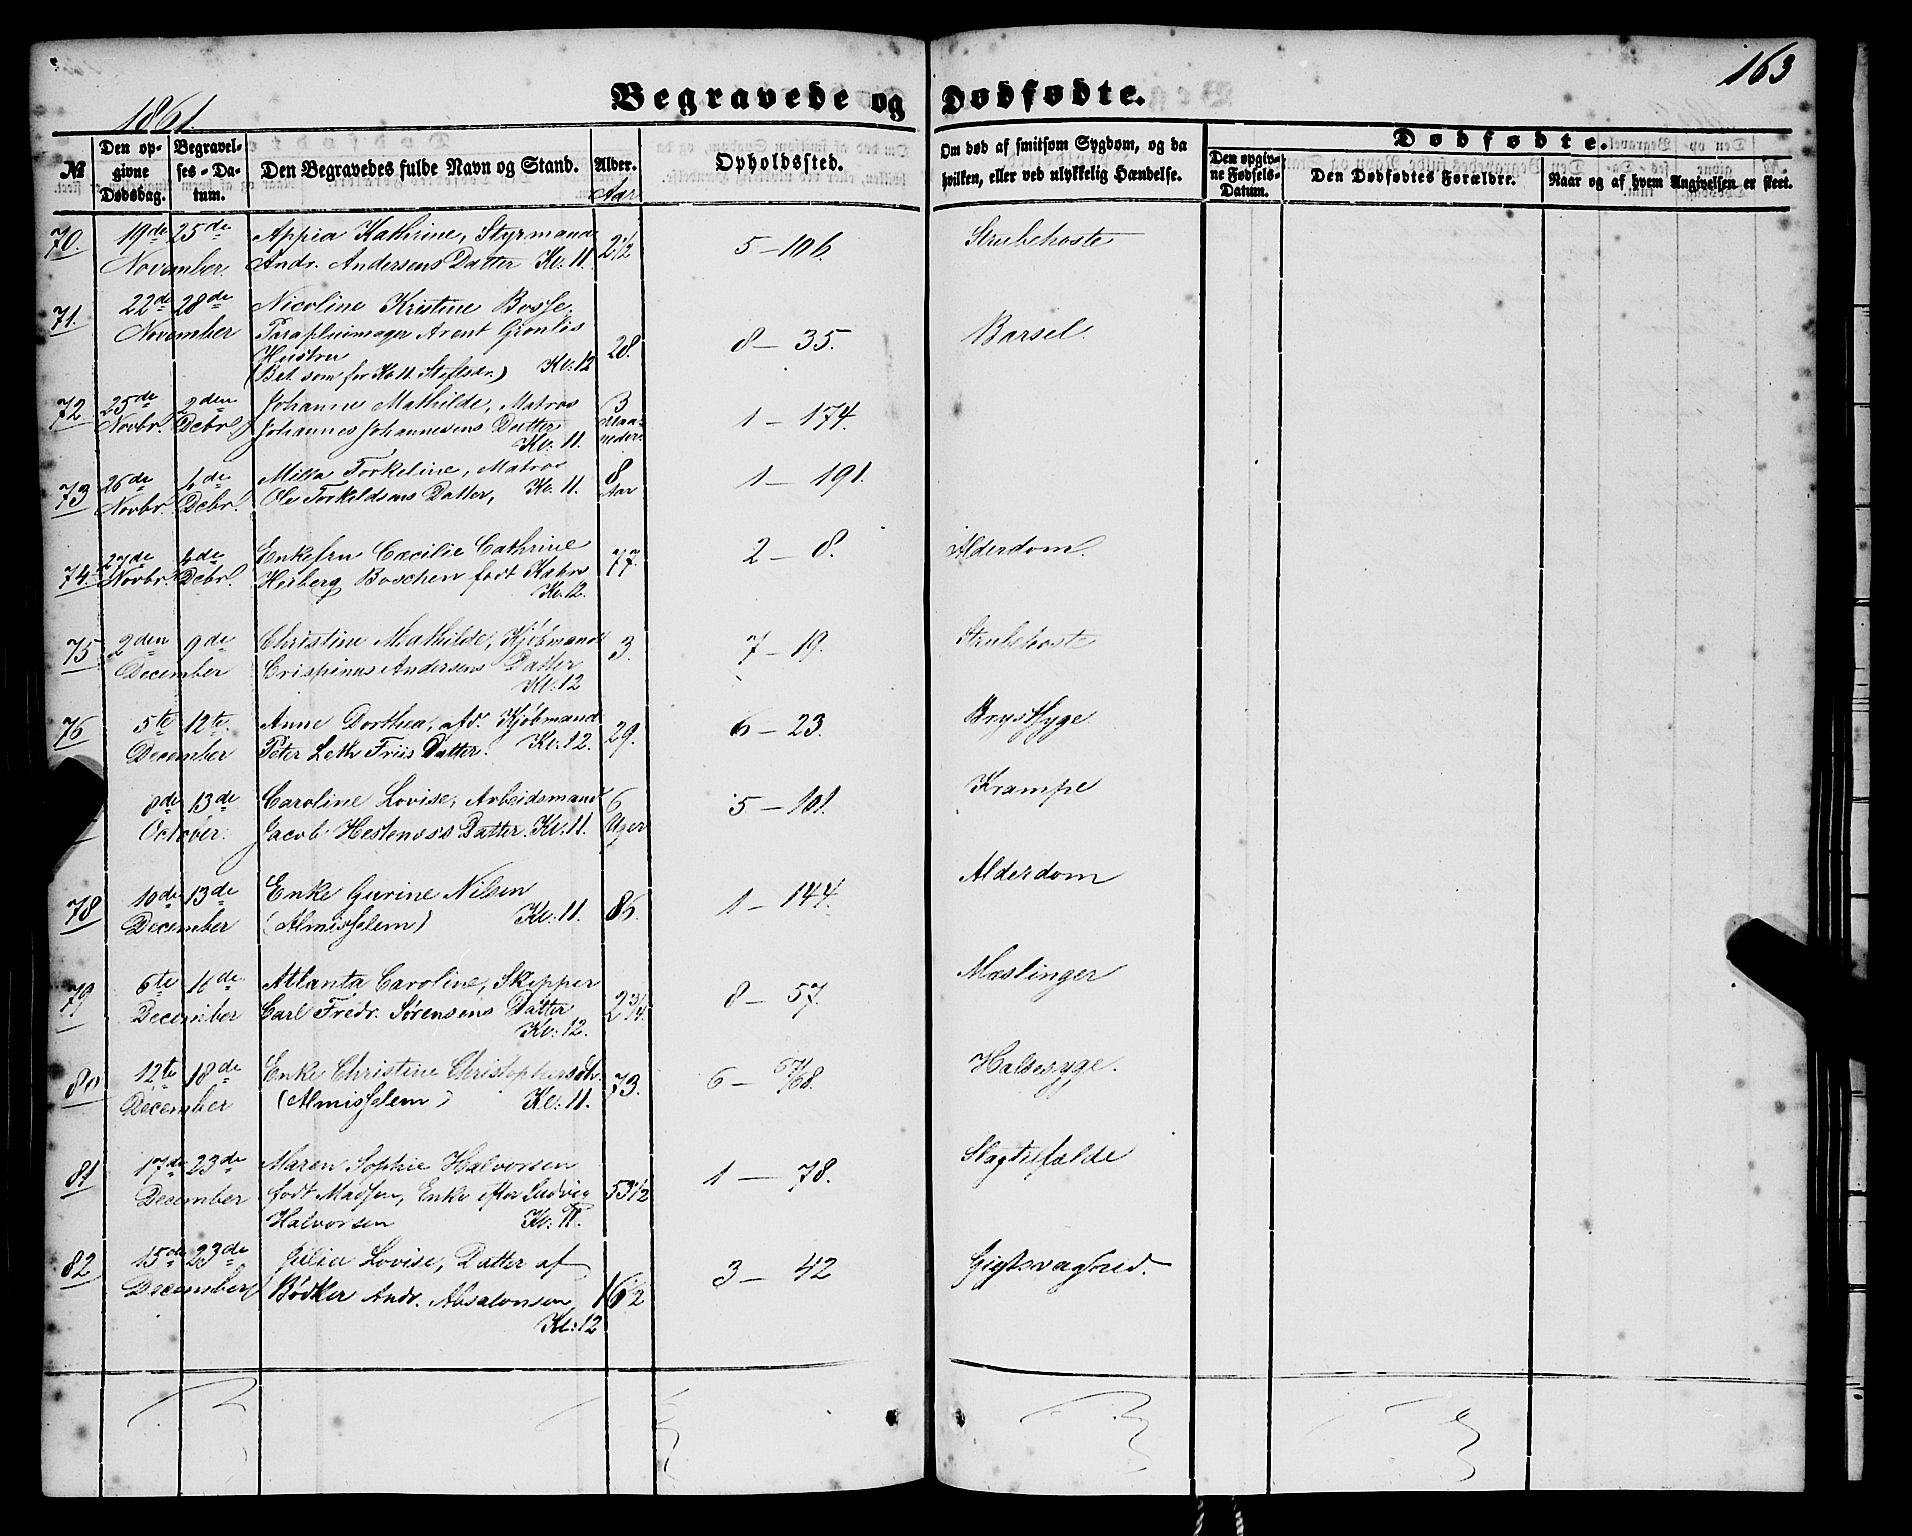 163
1861.
Begravede og Dødfødte.
№
Den opgivne Dødsdag.
Begravelses-Datum.
Den Begravedes fulde Navn og Stand.
Alder.
Aar
Opholdssted.
Om død af smitsom Sygdom, og da hvilken, eller ved ulykkelig Hændelse.
Dødfødte.
Den opgivne Fødsels-Datum.
Den Dødfødtes Forældre.
Naar og af hvem Angivelsen er skeet.
70. 19de 25de Appia Kathrine, Styrmand 2 1/2 5 – 106. Strubehoste
November. Andr. Andersens Datter Kl. 11.
71. 22de 28de Nicoline Kristine Bosse,
November Parapluimager Arent Grønlis 28. 8 – 35. Barsel.
Hustru
(Bet. som for Kl. 11. Stiftsdr.) Kl. 12
72 25de 2den Johanne Mathilde, Matros 3 1 – 174.
Novbr. Debr. Johannes Johannesens Datter Maaneder.
Kl. 11.
73 26de 6de Milla Torkeline, Matros 8 1 – 191.
Novbr. Debr. Ole Torkildsens Datter, Kl. 11. Aar
74. 27de 6de Enkefru Cæcilie Cathrine 77. 2 – 8. Alderdom.
Novbr. Debr. Heiberg Boschen født Kahrs
Kl. 12.
75 2den 9de Christine Mathilde, Kjøbmand 3. 7 – 19. Strubehoste
December Crispinus Andersens Datter
Kl: 12
76 5te 12te. Anne Dorthea, afd. Kjøbmand 29. 6 – 23. Brystsyge
December Peter Leth Friis Datter. Kl. 12.
8de 13de Caroline Lovise, Arbeidsmand 6 5 – 101. Krampe
October. Jacob Hestenæss Datter. Kl: 11. Uger
78 10de 13de Enke Gurine Nilsen 86. 1 – 144. Alderdom
December (Almisselem) Kl: 11.
79 6te 16de Atlanta Caroline, Skipper 2 3/4 8 – 57. Mæslinger
December Carl Fredr. Sørensens Datter
Kl: 12.
80 12te 18de Enke Christine Christophersdtr. 73. 6 – 67/68. Halssyge.
December (Almisselem) Kl: 11.
81 17de 23de Maren Sophie Halvorsen 53 1/2 1 – 78. Slagtilfælde
December født Madsen, Enke efter Ludvig
Halvorsen Kl. 11.
82 15de 23de Julia Lovise, Datter af 16 1/2 3 – 42 Gigtsvaghed.
December Bødker Andr. Absalonsen,
Kl: 12